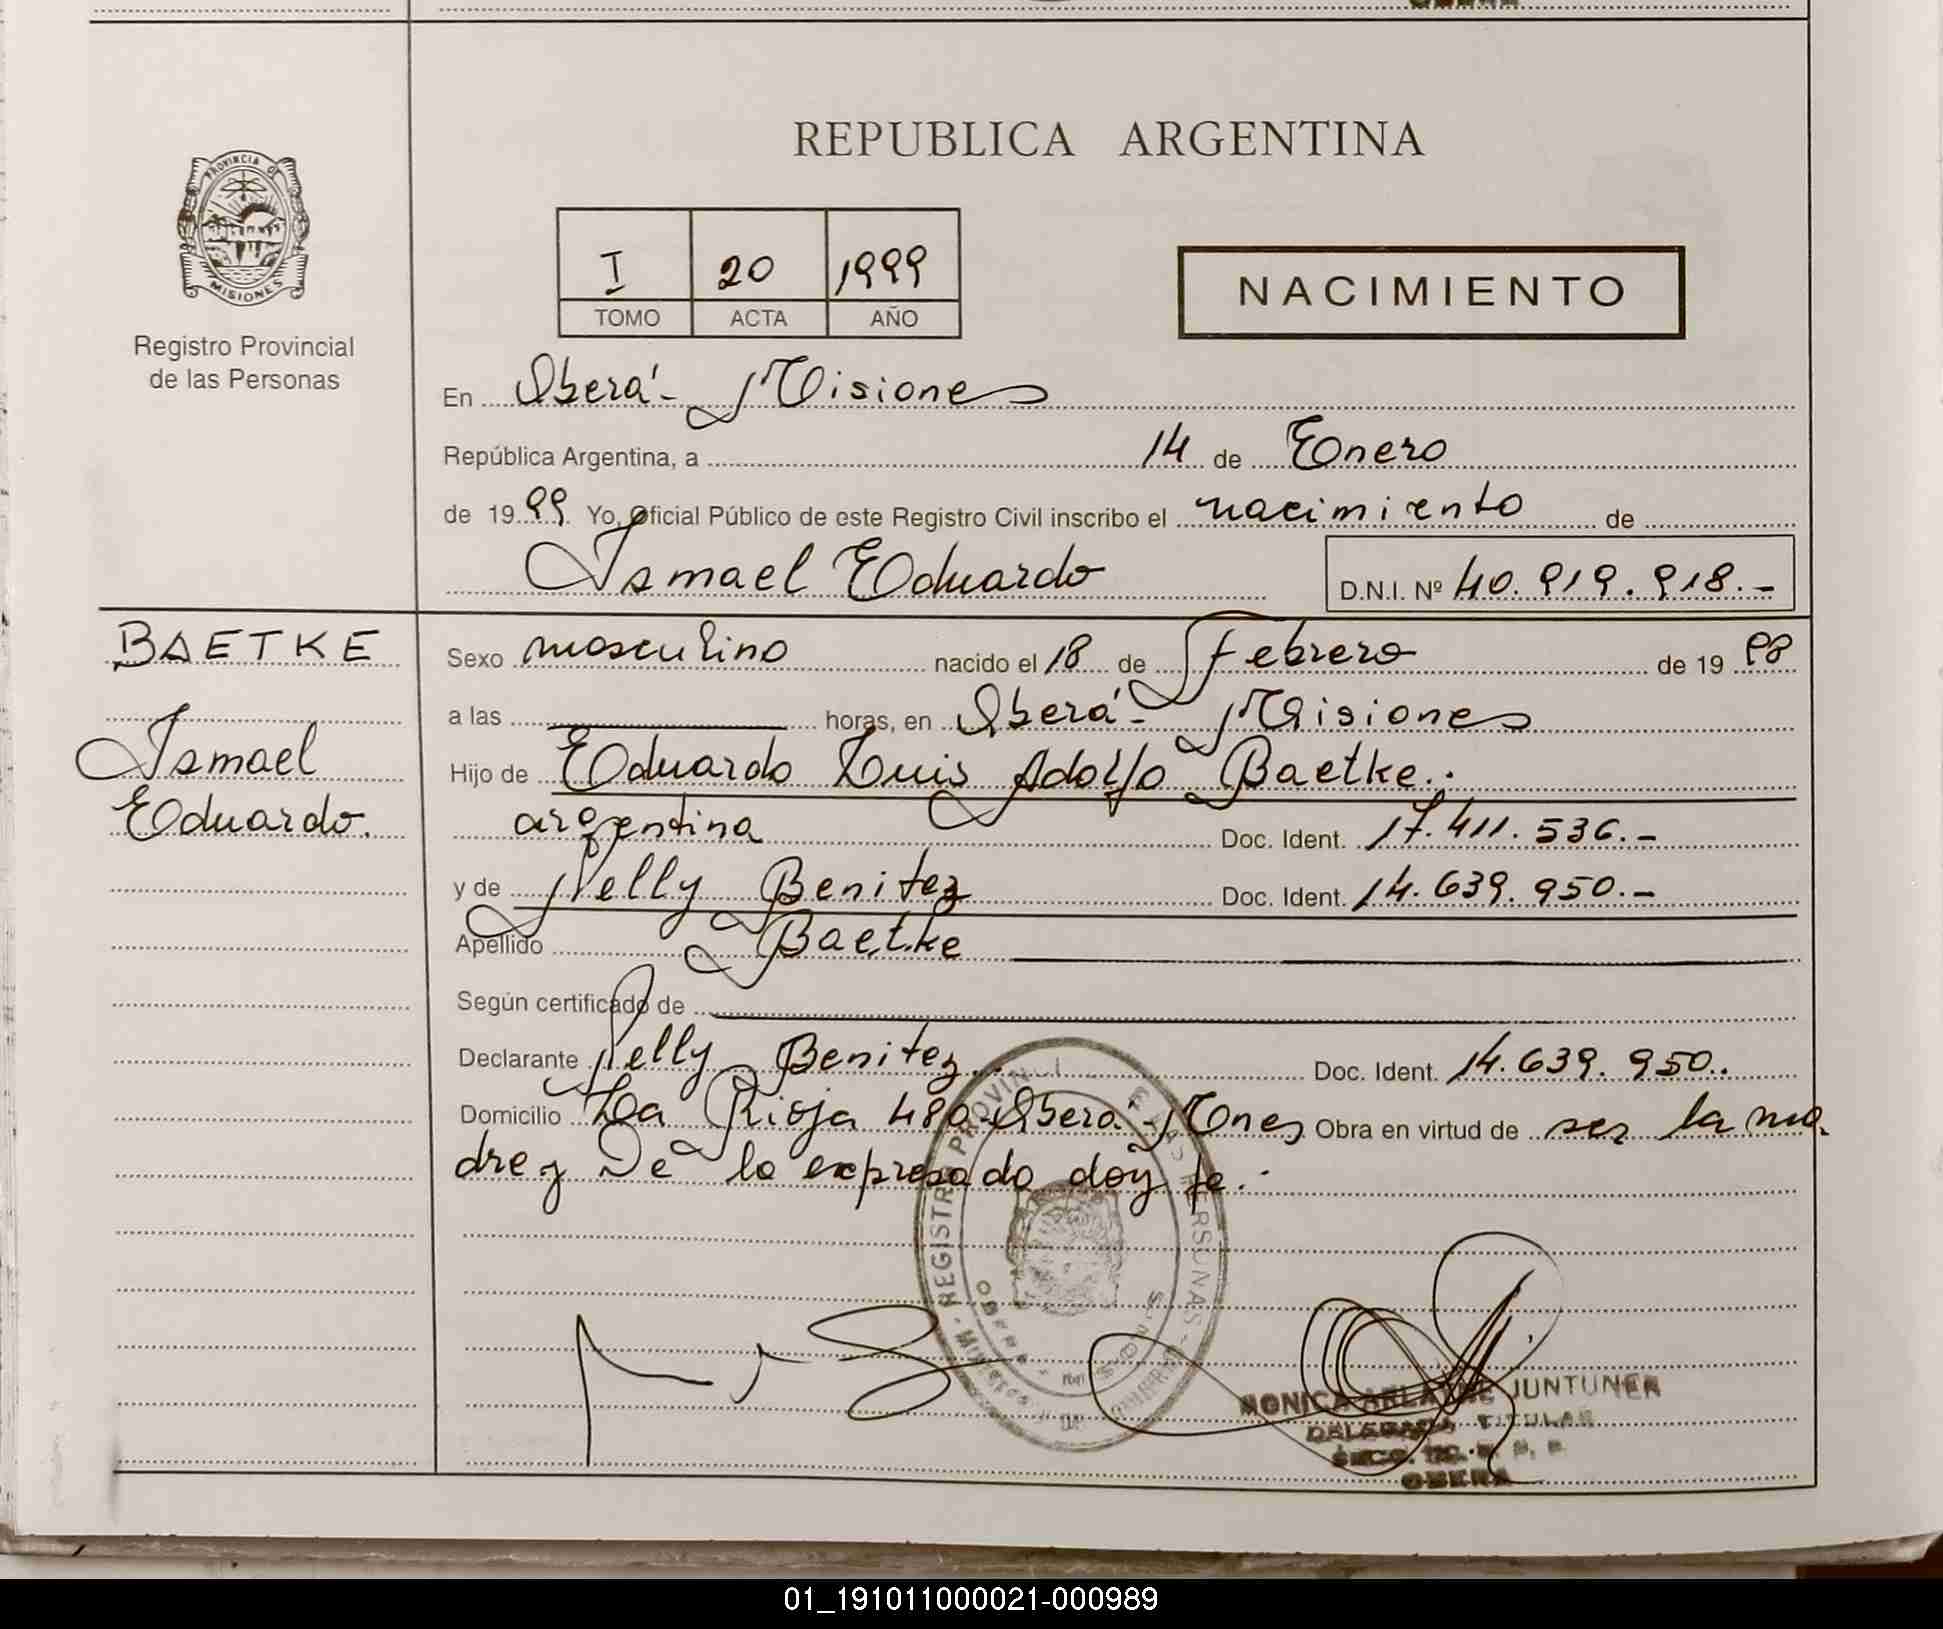 PROVINCIA DE
MISIONES
Registro Provincial
de las Personas
REPUBLICA ARGENTINA
I 20 1999
TOMO ACTA AÑO
NACIMIENTO
En Oberá - Misiones
República Argentina, a 14 de Enero
de 1999 Yo, Oficial Público de este Registro Civil inscribo el nacimiento de
Ismael Eduardo D.N.I. Nº 40.919.918.-
BAETKE
Ismael
Eduardo.
Sexo masculino nacido el 18 de Febrero de 1998
a las horas, en Oberá - Misiones
Hijo de Eduardo Luis Adolfo Baetke.
argentina Doc. Ident. 17.411.536.-
y de Nelly Benitez Doc. Ident. 14.639.950.-
Apellido Baetke
Según certificado de
Declarante Nelly Benitez Doc. Ident. 14.639.950.
Domicilio La Rioja 480 - Oberá - Mnes Obra en virtud de ser la ma-
dre y De lo expresado doy fe.-
REGISTRO PROVINCI PERSONAS
MONICA JUNTUNEN
DELEGADA TITULAR
OBERA
01_191011000021-000989